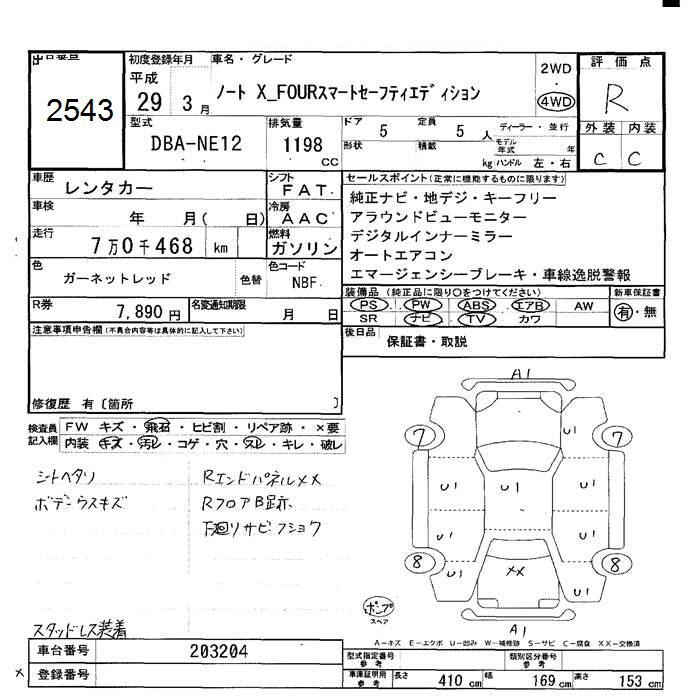 出品番号 初度登録年月 車名・グレード 2WD 評価点
2543 平成 29 3月 ノート X_FOURスマートセーフティエディション 4WD R
型式 排気量 ドア 5 定員 5人 ディーラー・並行 外装 内装
DBA-NE12 1198 CC 形状 積載 kg モデル年式 年 ハンドル 左・右 C C
車歴 レンタカー シフト FAT セールスポイント(正常に機能するものに限ります)
車検 年 月( 日) 冷房 AAC 純正ナビ・地デジ・キーフリー
アラウンドビューモニター
走行 7万0千468 km 燃料 ガソリン デジタルインナーミラー
オートエアコン
色 ガーネットレッド 色替 色コード NBF エマージェンシーブレーキ・車線逸脱警報
R券 7,890円 名変通知期限 月 日 装備品(純正品に限り○をつけてください) 新車保証書
PS PW ABS エアB AW 有・無
SR ナビ TV カワ
注意事項申告欄(不具合内容等は具体的に記入して下さい) 後日品 保証書・取説
修復歴 有〔箇所 〕
検査員記入欄 FW キズ・飛石・ヒビ割・リペア跡・×要
内装 キズ・汚レ・コゲ・穴・スレ・キレ・破レ
シートヘタリ RエンドパネルXX
ボデーウスキズ RフロアB跡
下廻りサビフショク
スタッドレス装着
A1
7 U1 7
U1 U1 U1
U1 U1
8 U1 XX U1 8
ポンプ
スペア
A1
A-キズ E-エクボ U-凹み W-補修跡 S-サビ C-腐食 XX-交換済
車台番号 203204
型式指定番号 参考 類別区分番号 参考
× 登録番号
車庫証明用 参考 長さ 410 cm 幅 169 cm 高さ 153 cm